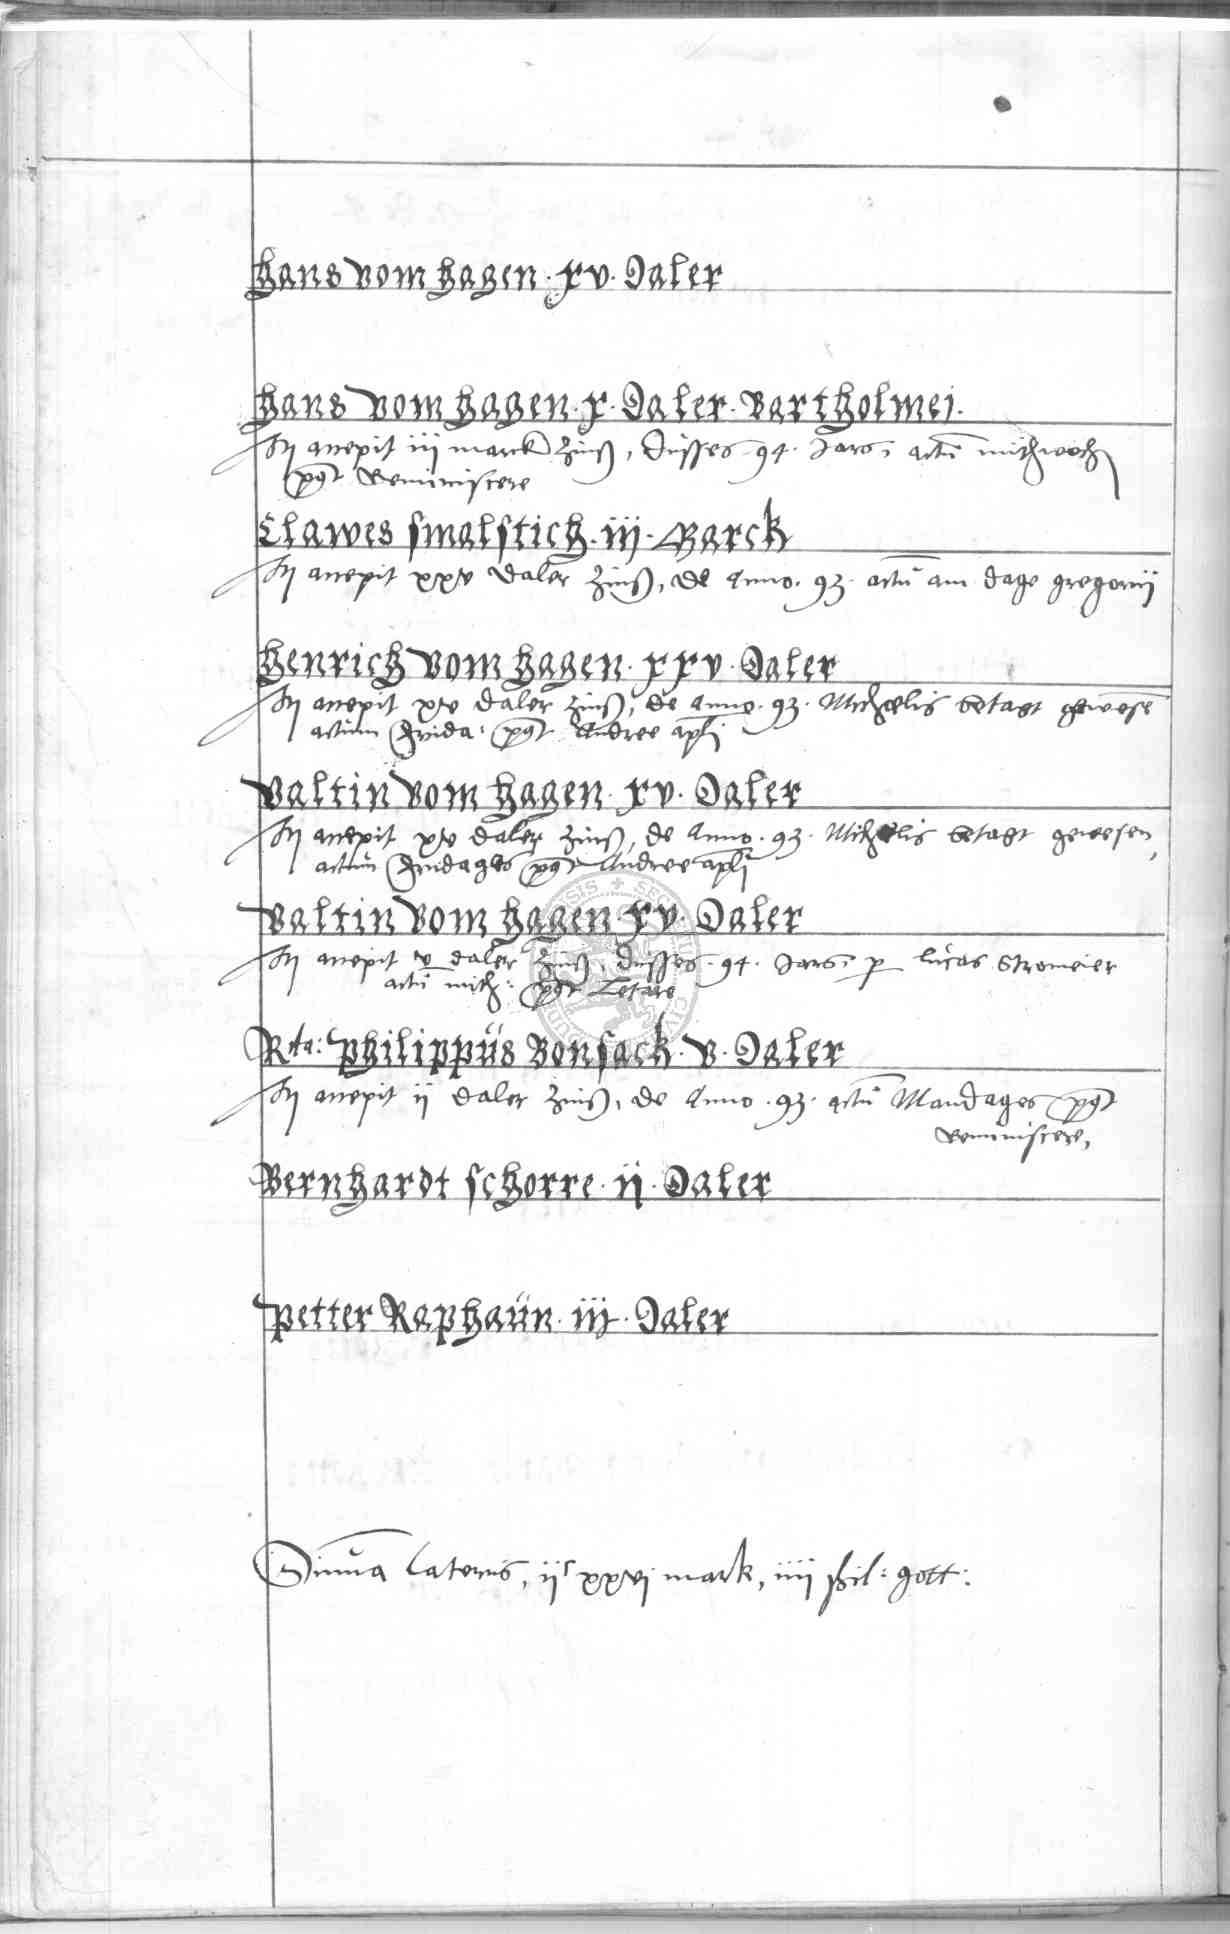 Hans vom Hagen · xv · Daler
Hans vom Hagen · x · Daler · Bartholmei ·
accepit iij marck Zinß, dusses 94 · Jars, actū mithwoch
pꝰt Reminiscere
Clawes smalstich · iij · Marck
accepit xxv daler Zinß, de Anno · 93 · actū am dage gregorii
Henrich vom Hagen · xxv · Daler
accepit xv daler Zinß, de Anno · 93 · Michaelis betagt gewesē
actum Frida: pꝰt Andree apli
Valtin vom Hagen · xv · Daler
accepit xv daler Zinß, de Anno · 93 · Michaelis betagt gewesen,
actum Fridages pꝰt Andree apli
Valtin vom Hagen · xv · Daler
accepit v daler Zinß, dusses · 94 · Jars, p lucas Stromeier
actū mith: pꝰt Letare
Rta: Philippus Bonsack · v · Daler
accepit ij daler Zinß, de Anno · 93 · actū Mandages pꝰt
Reminiscere,
Bernhardt schorre · ij · Daler
Petter Raphaun · iij · Daler
Suma Lateris, ijc xxvj mark, iiij ßil: gott: